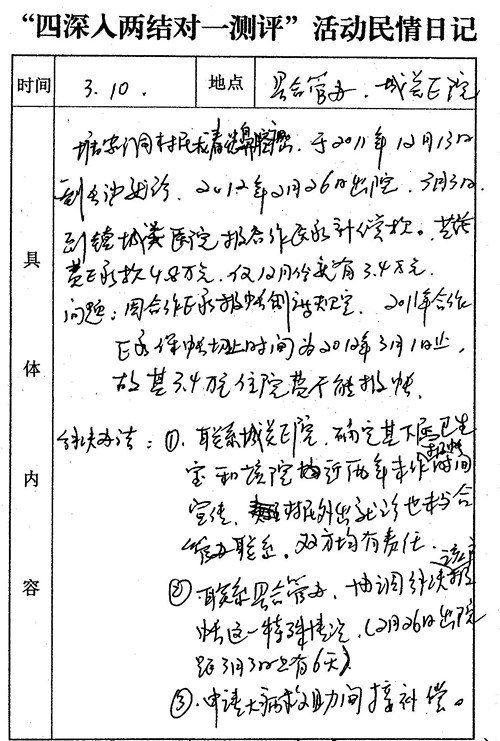 “四深入两结对一测评”活动民情日记
时间 3.10. 地点 县合管办、城关医院
具体内容
村民 鼻腔癌，于2011年12月13日
到长沙就诊，2012年2月26日出院，3月3日
到镇城关医院报合作医疗补偿款。总花
费医疗款4.8万元，仅12月份就有3.4万元，
问题：因合作医疗报帐制度规定，2011年合作
医疗保帐截止时间为2012年3月1日止，
故其3.4万元住院费不能报帐。
解决办法：①、联系城关医院，确定其下属卫生
室和该院均近两年未作报帐时间
宣传，村民外出就诊也未与合
管办联系，双方均有责任。
②联系县合管办，协调解决该户报
帐这一特殊情况，(2月26日出院
距3月3日只有6天)
③、申请大病救助间接补偿。